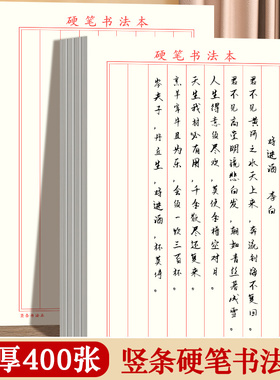 硬笔书法本
硬笔书法本
将进酒 李白
君不见黄河之水天上来，奔流到海不复回
君不见高堂明镜悲白发，朝如青丝暮成雪。
人生得意须尽欢，莫使金樽空对月。
天生我材必有用，千金散尽还复来。
烹羊宰牛且为乐，会须一饮三百杯。
岑夫子，丹丘生，将进酒，杯莫停。
竖条书法本
厚400张 竖条硬笔书法